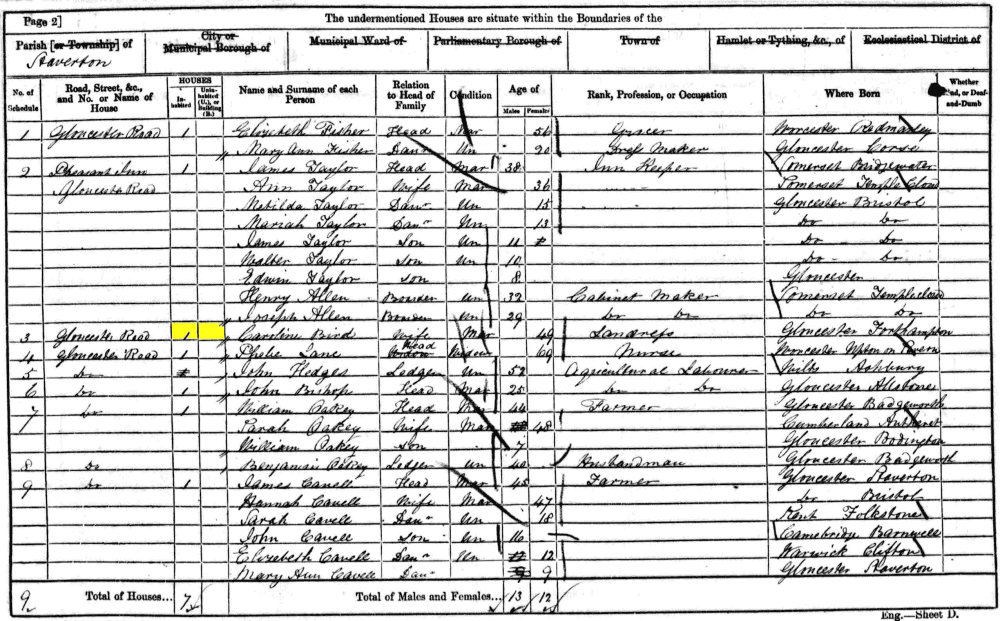 Page 2] The undermentioned Houses are situate within the Boundaries of the
Parish [or Township] of City or Municipal Borough of Municipal Ward of Parliamentary Borough of Town of Hamlet or Tything, &c., of Ecclesiastical District of
Staverton
No. of Schedule Road, Street, &c., and No. or Name of House HOUSES In-habited Unin-habited (U.), or Building (B.) Name and Surname of each Person Relation to Head of Family Condition Age of Males Females Rank, Profession, or Occupation Where Born Whether Blind, or Deaf-and-Dumb
1 Gloucester Road 1 Elizabeth Fisher Head Mar 56 Grocer Worcester Redmarley
Mary Ann Fisher Daur Un 20 Dress Maker Gloucester Corse
2 Pheasant Inn 1 James Taylor Head Mar 38 Inn Keeper Somerset Bridgewater
Gloucester Road Ann Taylor Wife Mar 36 Somerset Temple Cloud
Matilda Taylor Daur Un 15 Gloucester Bristol
Mariah Taylor Daur Un 13 Do Do
James Taylor Son Un 11 Do Do
Walter Taylor Son Un 10 Do Do
Edwin Taylor Son 8 Gloucester
Henry Allen Boarder Un 32 Cabinet Maker Somerset Templecloud
Joseph Allen Boarder Un 29 Do Do Do Do
3 Gloucester Road 1 Caroline Bird Wife Mar 49 Landress Gloucester Forthampton
4 Gloucester Road 1 Phebe Lane Widow Head Widow 69 Nurse Worcester Upton on Severn
5 Do John Hedges Lodger Un 52 Agricultural Labourer Wilts Ashbury
6 Do 1 John Bishop Head Mar 25 Do Do Gloucester Allstones
7 Do 1 William Oakey Head Mar 44 Farmer Gloucester Badgeworth
Sarah Oakey Wife Mar 48 Cumberland
William Oakey Son 7 Gloucester Bodington
8 Do Benjamin Oakey Lodger Un 40 Husbandman Gloucester Badgeworth
9 Do 1 James Cavell Head Mar 45 Farmer Gloucester Staverton
Hannah Cavell Wife Mar 47 Do Bristol
Sarah Cavell Daur Un 18 Kent Folkstone
John Cavell Son Un 16 Camebridge Barnwell
Elizebeth Cavell Daur Un 12 Warwick Clifton
Mary Ann Cavell Daur 9 Gloucester Staverton
9 Total of Houses... 7 Total of Males and Females... 13 12
Eng.—Sheet D.